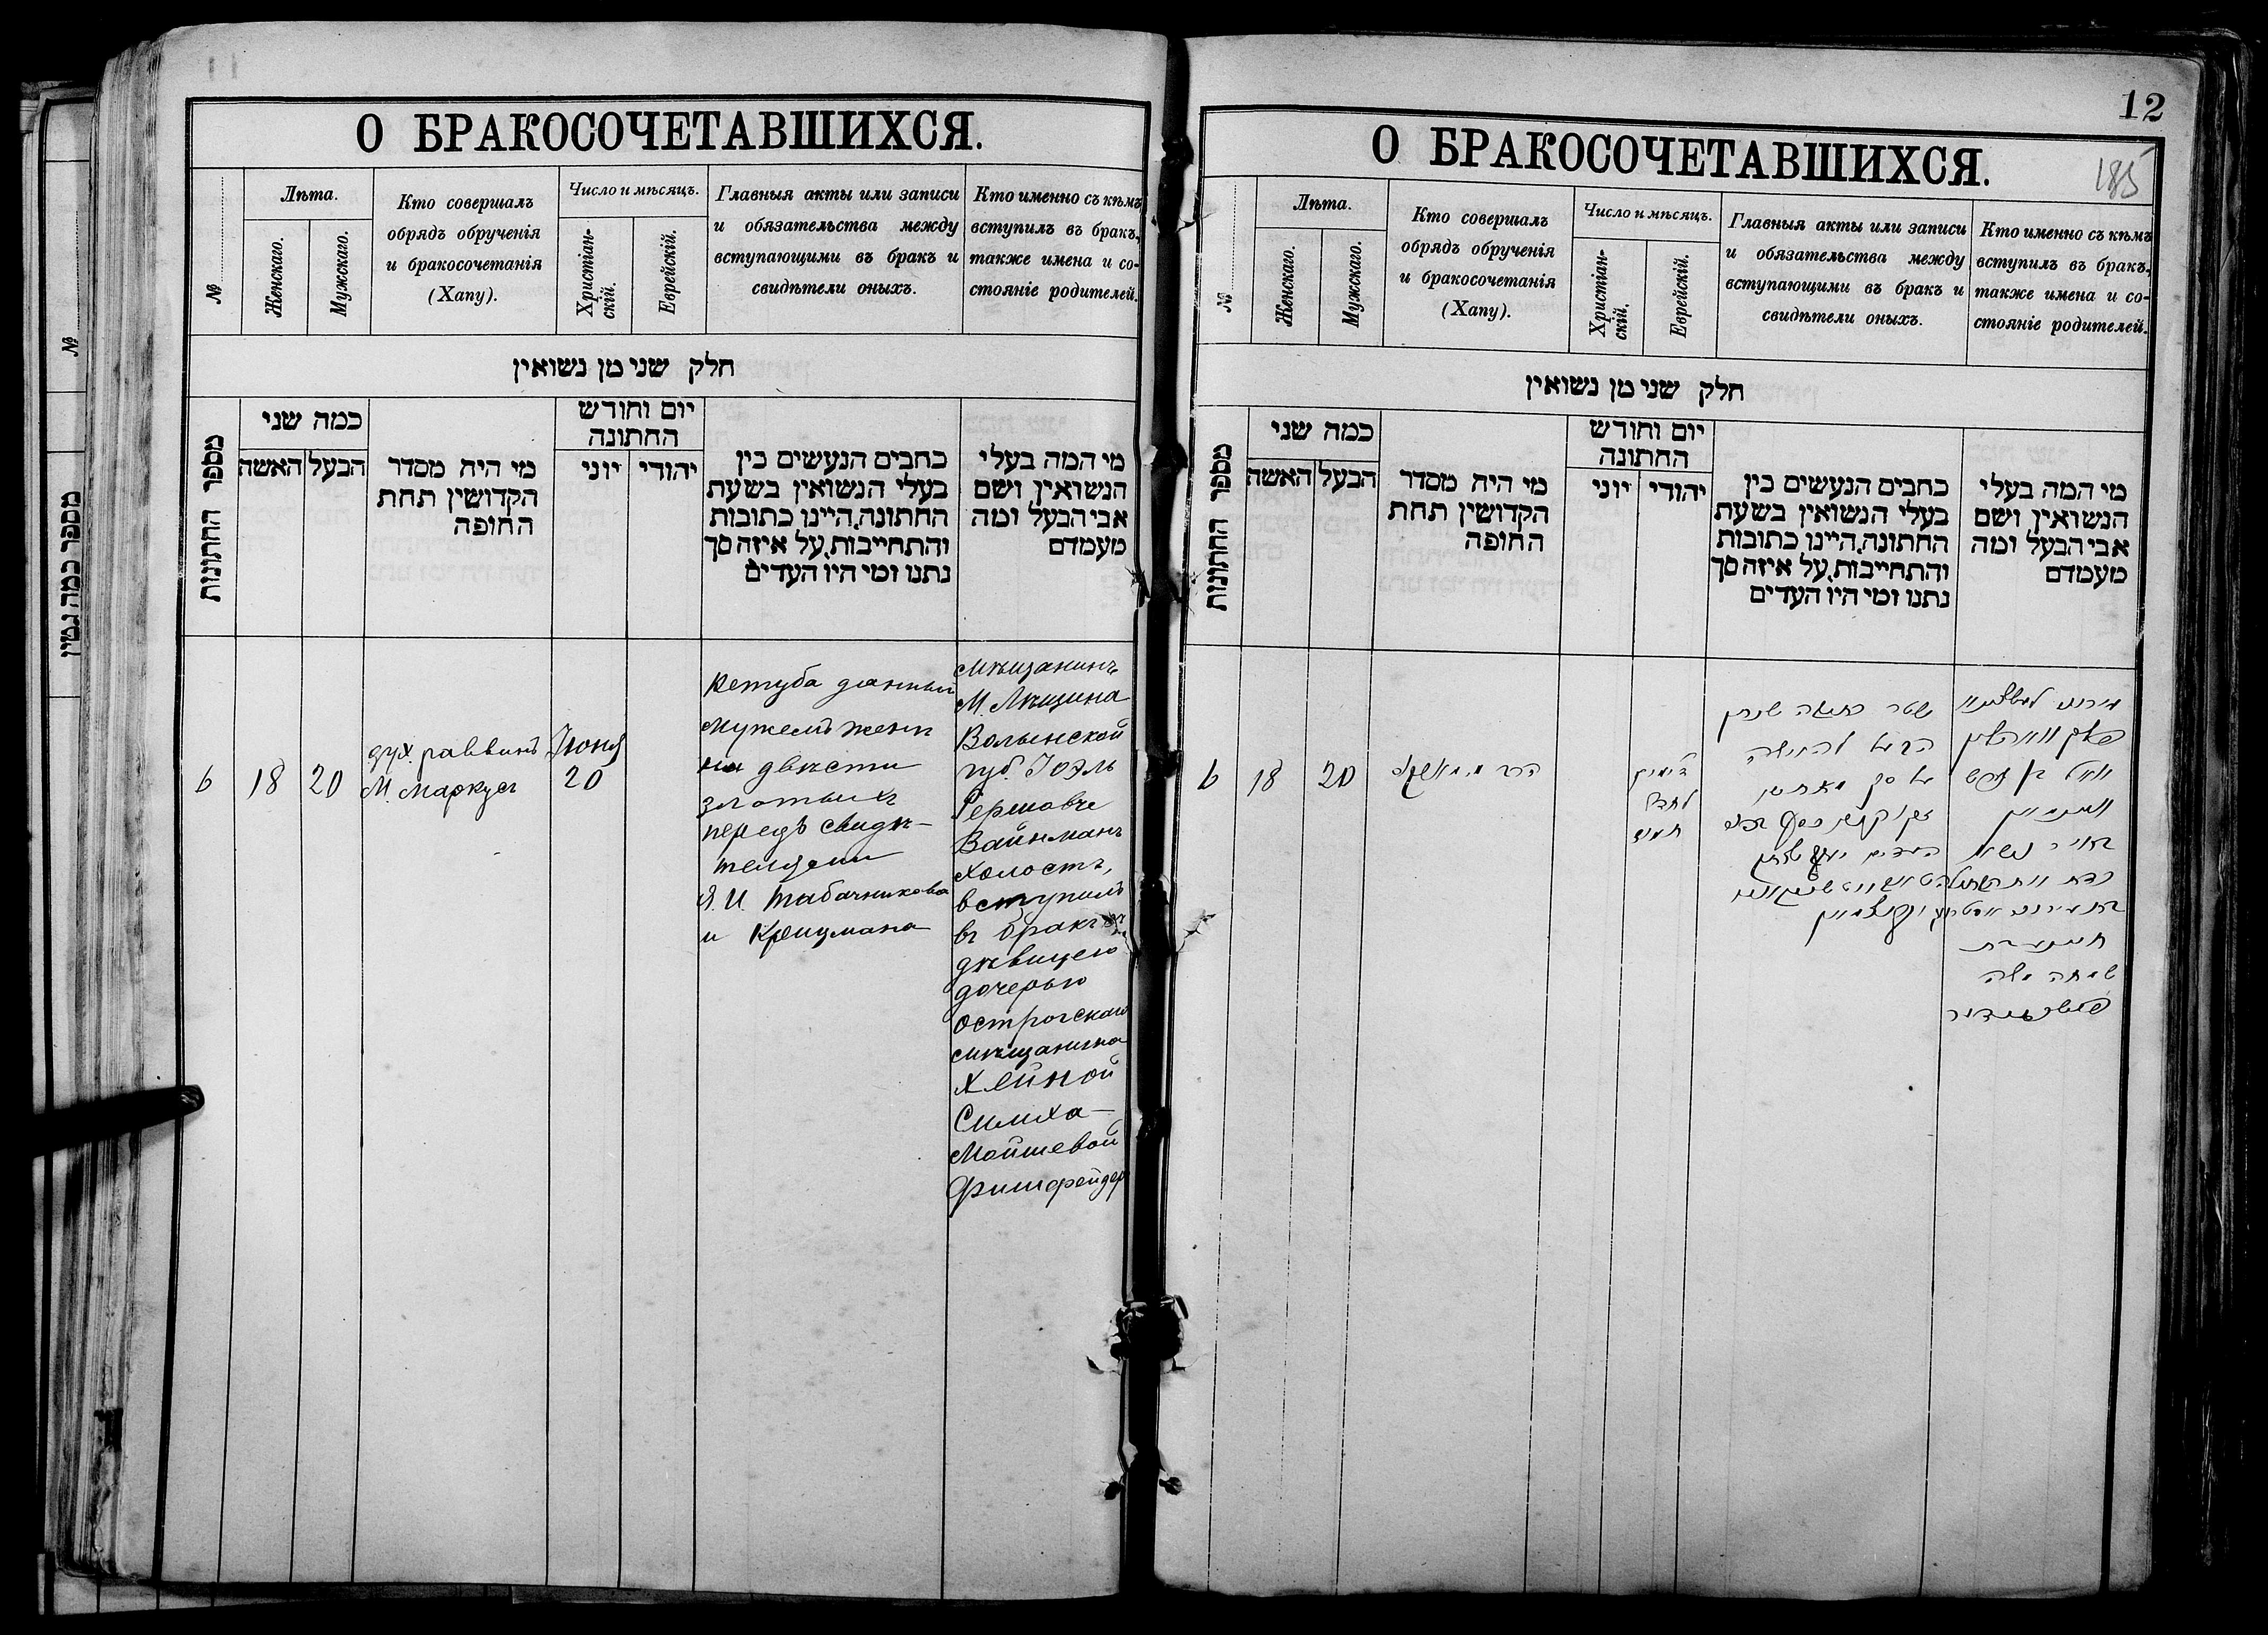 О БРАКОСОЧЕТАВШИХСЯ.
№
Лѣта.
Женскаго.
Мужскаго.
Кто совершалъ
обрядъ обрученія
и бракосочетанія
(Хапу).
Число и мѣсяцъ.
Христіан-
скій.
Еврейскій.
Главныя акты или записи
и обязательства между
вступающими въ бракъ и
свидѣтели оныхъ.
Кто именно съ кѣмъ
вступилъ въ бракъ,
также имена и со-
стояніе родителей.
חלק שני מן נשואין
מספר החתונות
כמה שני
האשה
הבעל
מי היח מסדר
הקדושין תחת
החופה
יום וחודש
החתונה
יוני
יהודי
כתבים הנעשים בין
בעלי הנשואין בשעת
החתונה,היינו כתובות
והתחייבות,על איזה סך
נתנו ומי היו העדים
מי המה בעלי
הנשואין, ושם
אבי הבעל ומה
מעמדם
6
18
20
дух. раввинъ
М. Маркусъ
Іюня
20
Кетуба данный
мужемъ жени
на двѣсти
злотыхъ
передъ свидѣ-
телями
Я. И. Табачникова
и Крейцмана
Мѣщанинъ
М. Лѣщина
Волынской
губ. Іоэль
Гершовъ
Вайнманъ
холостъ,
вступилъ
въ бракъ съ
дѣвицею
дочерью
Острогскаго
мѣщанина
Хейной
Симха-
Мойшевой
Фишфейдер
12
185
О БРАКОСОЧЕТАВШИХСЯ.
№
Лѣта.
Женскаго.
Мужскаго.
Кто совершалъ
обрядъ обрученія
и бракосочетанія
(Хапу).
Число и мѣсяцъ.
Христіан-
скій.
Еврейскій.
Главныя акты или записи
и обязательства между
вступающими въ бракъ и
свидѣтели оныхъ.
Кто именно съ кѣмъ
вступилъ въ бракъ,
также имена и со-
стояніе родителей.
חלק שני מן נשואין
מספר החתונות
כמה שני
האשה
הבעל
מי היח מסדר
הקדושין תחת
החופה
יום וחודש
החתונה
יוני
יהודי
כתבים הנעשים בין
בעלי הנשואין בשעת
החתונה,היינו כתובות
והתחייבות,על איזה סך
נתנו ומי היו העדים
מי המה בעלי
הנשואין, ושם
אבי הבעל ומה
מעמדם
6
18
20
שטר כתובה שנתן
הבעל להאשה
על סך מאתים
זקוקים כסף
העדים
שמחה משה